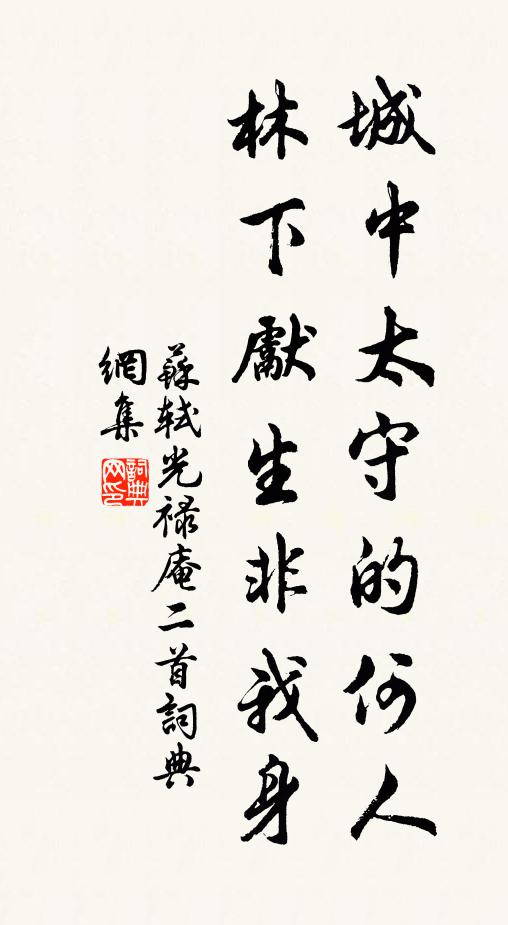 城中太守的何人
林下獻生非我身
蘇軾光禄庵二首詞典
網集
詞典網印